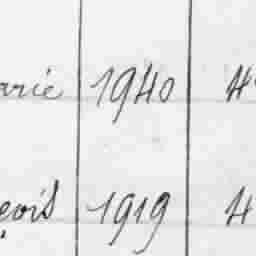 arie 1940 H
çois 1919 H